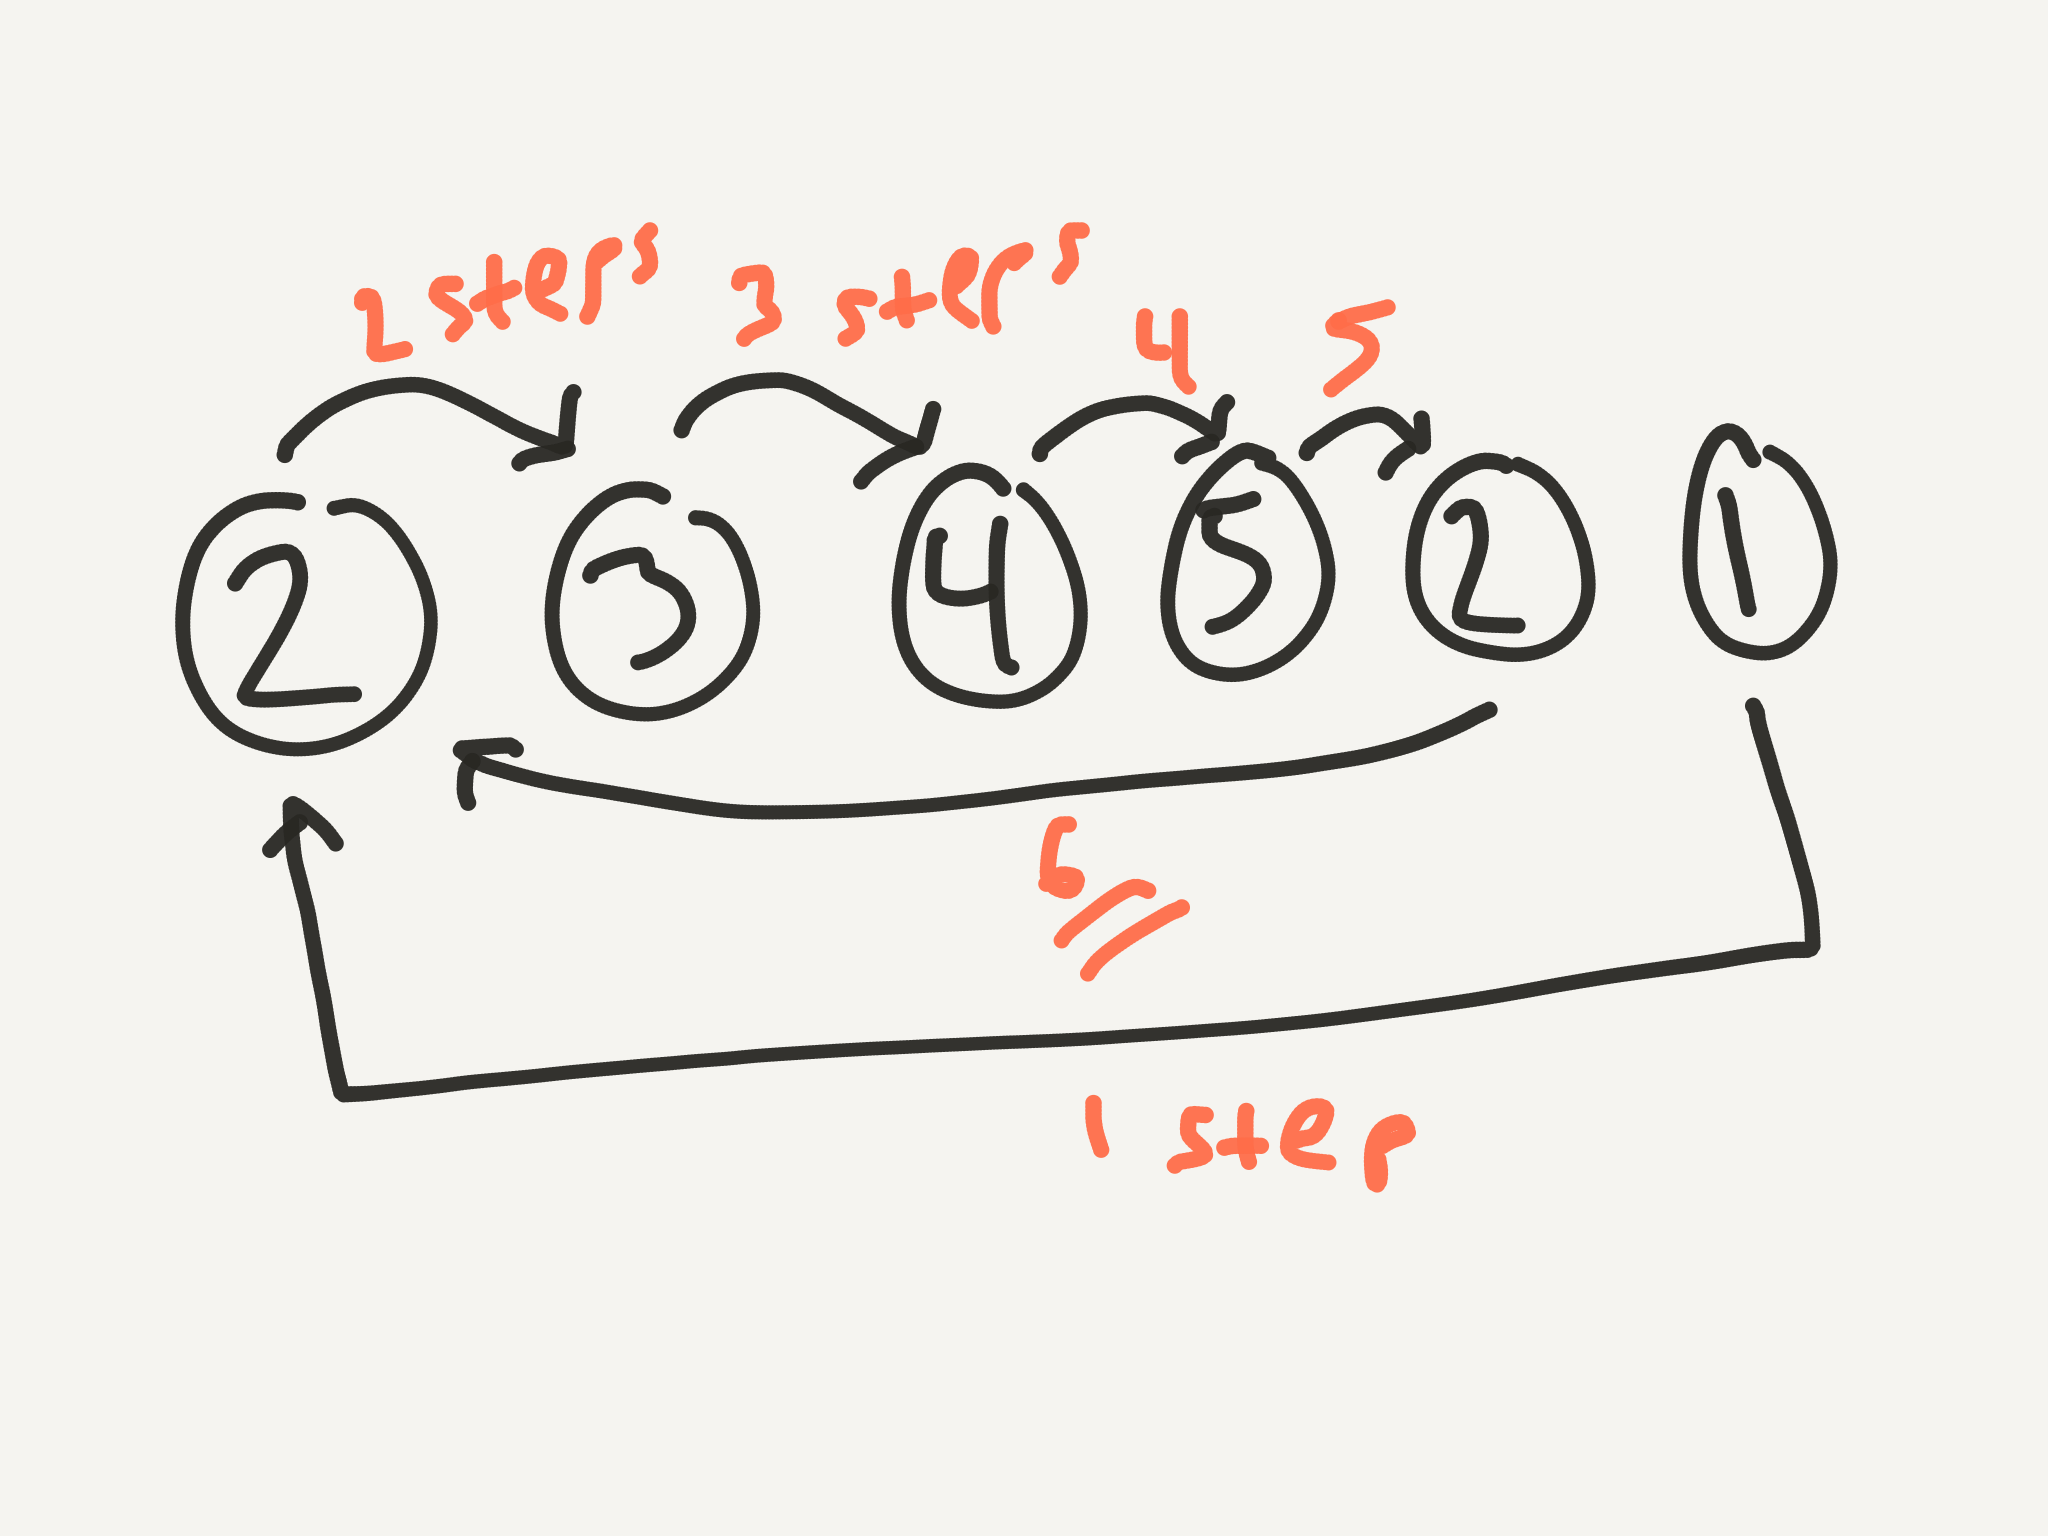 2 steps 3 steps 4 5
2 3 4 5 2 1
6
1 step